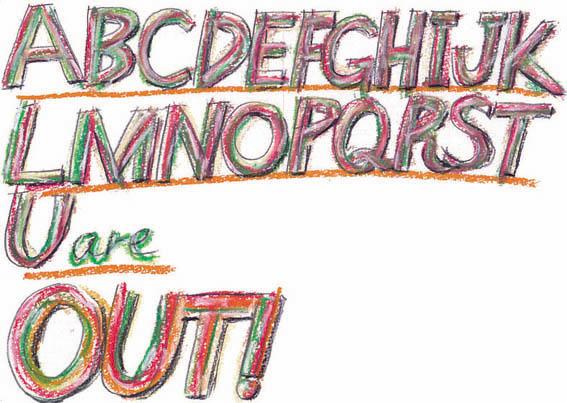 ABCDEFGHIJK
LMNOPQRST
U are
OUT!